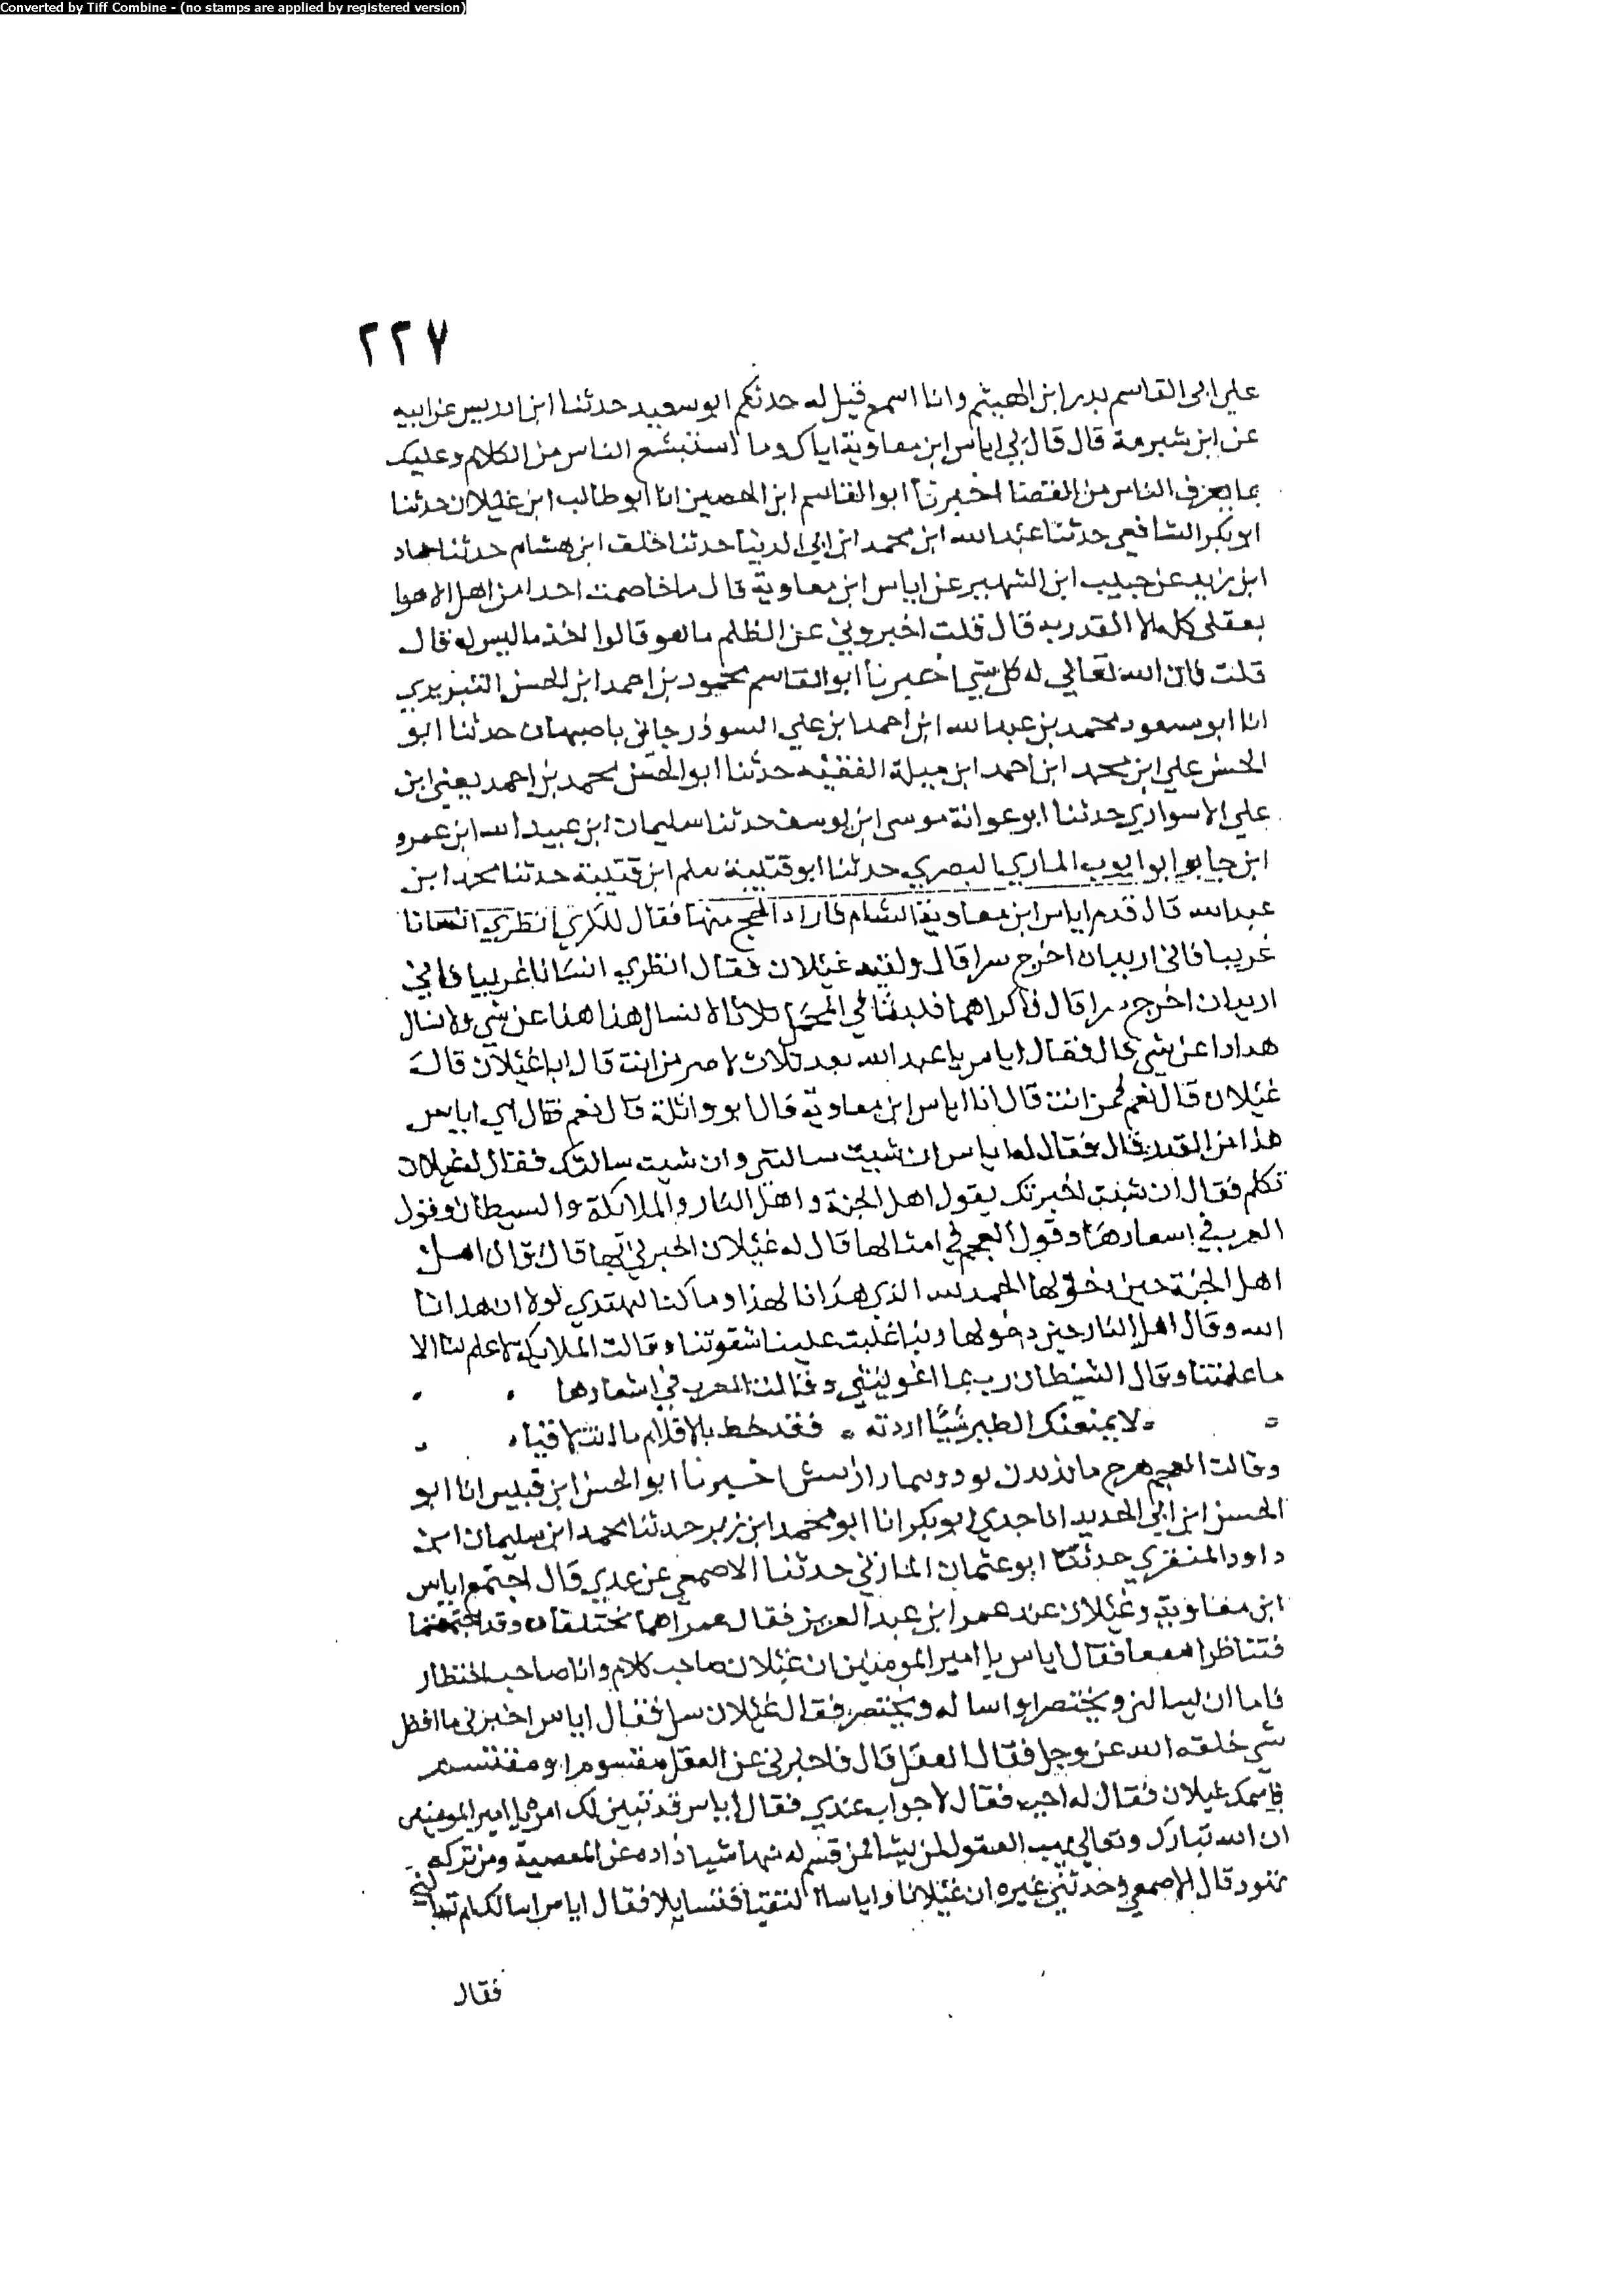 Converted by Tiff Combine - (no stamps are applied by registered version)
٢٢٧
علي ابي القاسم بدر ابن الهيثم وانا اسمع قيل له حدثكم ابو سعيد حدثنا ابن ادريس عن ابيه
عن ابن شبرمة قال قال لي اياس ابن معاوية اياك وما استبشع الناس من الكلام وعليك
بما يعرف الناس من القضا اخبرنا ابو القاسم ابن الحصين انا ابو طالب ابن غيلان حدثنا
ابو بكر الشافعي حدثنا عبد الله ابن محمد ابن ابي الدنيا حدثنا خلف ابن هشام حدثنا حماد
ابن زيد عن حبيب ابن الشهيد عن اياس ابن معاوية قال ما خاصمت احدا من اهل الاهوا
بعقلي كله الا القدريه قال قلت اخبروني عن الظلم ما هو قالوا اخذ ما ليس له قال
قلت فان الله تعالي له كل شي اخبرنا ابو القاسم محمود بن احمد ابن الحسن التبريزي
انا ابو سعود محمد بن عبد الله ابن احمد ابن علي السوذرجاني باصبهان حدثنا ابو
الحسن علي ابن محمد ابن احمد ابن ميلة الفقيه حدثنا ابو الحسن محمد بن احمد يعني ابن
علي الاسواري حدثنا ابو عوانة موسي ابن يوسف حدثنا سليمان ابن عبيد الله ابن عمرو
ابن جابو ابو ايوب المازي البصري حدثنا ابو قتيبة سلم ابن قتيبة حدثنا محمد ابن
عبد الله قال قدم اياس ابن معاوية الشام فاراد الحج منها فقال للكري انظري انسانا
غريبا فاني اريد ان اخرج سرا قال ولقيه غيلان فقال انظري انسانا غريبا فاني
اريد ان اخرج سرا قال فاكراهما فلبثا في المحمل ثلاثا لا نسال هذا هذا عن شي ولا نسال
هذا ذا عن شي قال فقال اياس يا عبد الله بعد ثلاث من انت قال انا غيلان قال
غيلان قال نعم فمن انت قال انا اياس ابن معاوية قال ابو واثلة قال نعم فقال اي اياس
هذا من القدر قال فقال له اياس ان شيت سالتني وان شيت سالتك فقال له غيلان
تكلم فقال ان شيت اخبرتك بقول اهل الجنة واهل النار والملائكة والسيطان وقول
العرب في اسعارها وقول العجم في امثالها قال له غيلان اخبرني بها قال قال اهل
اهل الجنة حين دخولها الحمد لله الذي هدانا لهذا وما كنا لنهتدي لولا ان هدانا
الله وقال اهل النار حين دخولها ربنا غلبت علينا شقوتنا وقالت الملايكة لا علم لنا الا
ما علمتنا وقال الشيطان رب بما اغويتني وقالت العرب في اشعارها
لا يمنعنك الطير شيئا اردته فقد خط بالاقلام ما انت لاقيا
وقالت العجم اخبرنا ابو الحسن ابن قبيس انا ابو
الحسن ابن ابي الحديد انا جدي ابو بكر انا ابو محمد ابن زبر حدثنا محمد ابن سليمان ابن
داود المنقري حدثنا ابو عثمان المازني حدثنا الاصمعي عن عدي قال اجتمع اياس
ابن معاوية وغيلان عند عمر ابن عبد العزيز فقال عمر اهما مختلفان وقد اجتمعتما
فتناظرا معا فقال اياس يا امير المومنين ان غيلان صاحب كلام وانا صاحب اختطار
فاما ان يسالني ويختصر او اساله ويختصر فقال غيلان سل فقال اياس اخبرني ما افظل
شي خلقه الله عز وجل فقال العقل قال فاخبرني عن العقل مقسوم او مقتسم
فامسك غيلان فقال له اجب فقال لا جواب عندي فقال اياس قد تبين لك امره يا امير المومنين
ان الله تبارك وتعالي يهب العقول لمن يشا فمن قسم له منها شيا ذاده عن المعصية ومن تركه
تهود قال الاصمعي وحدثني غيره ان غيلانا واياسا التقيا فتسايلا فقال اياس اسالك ام
فقال